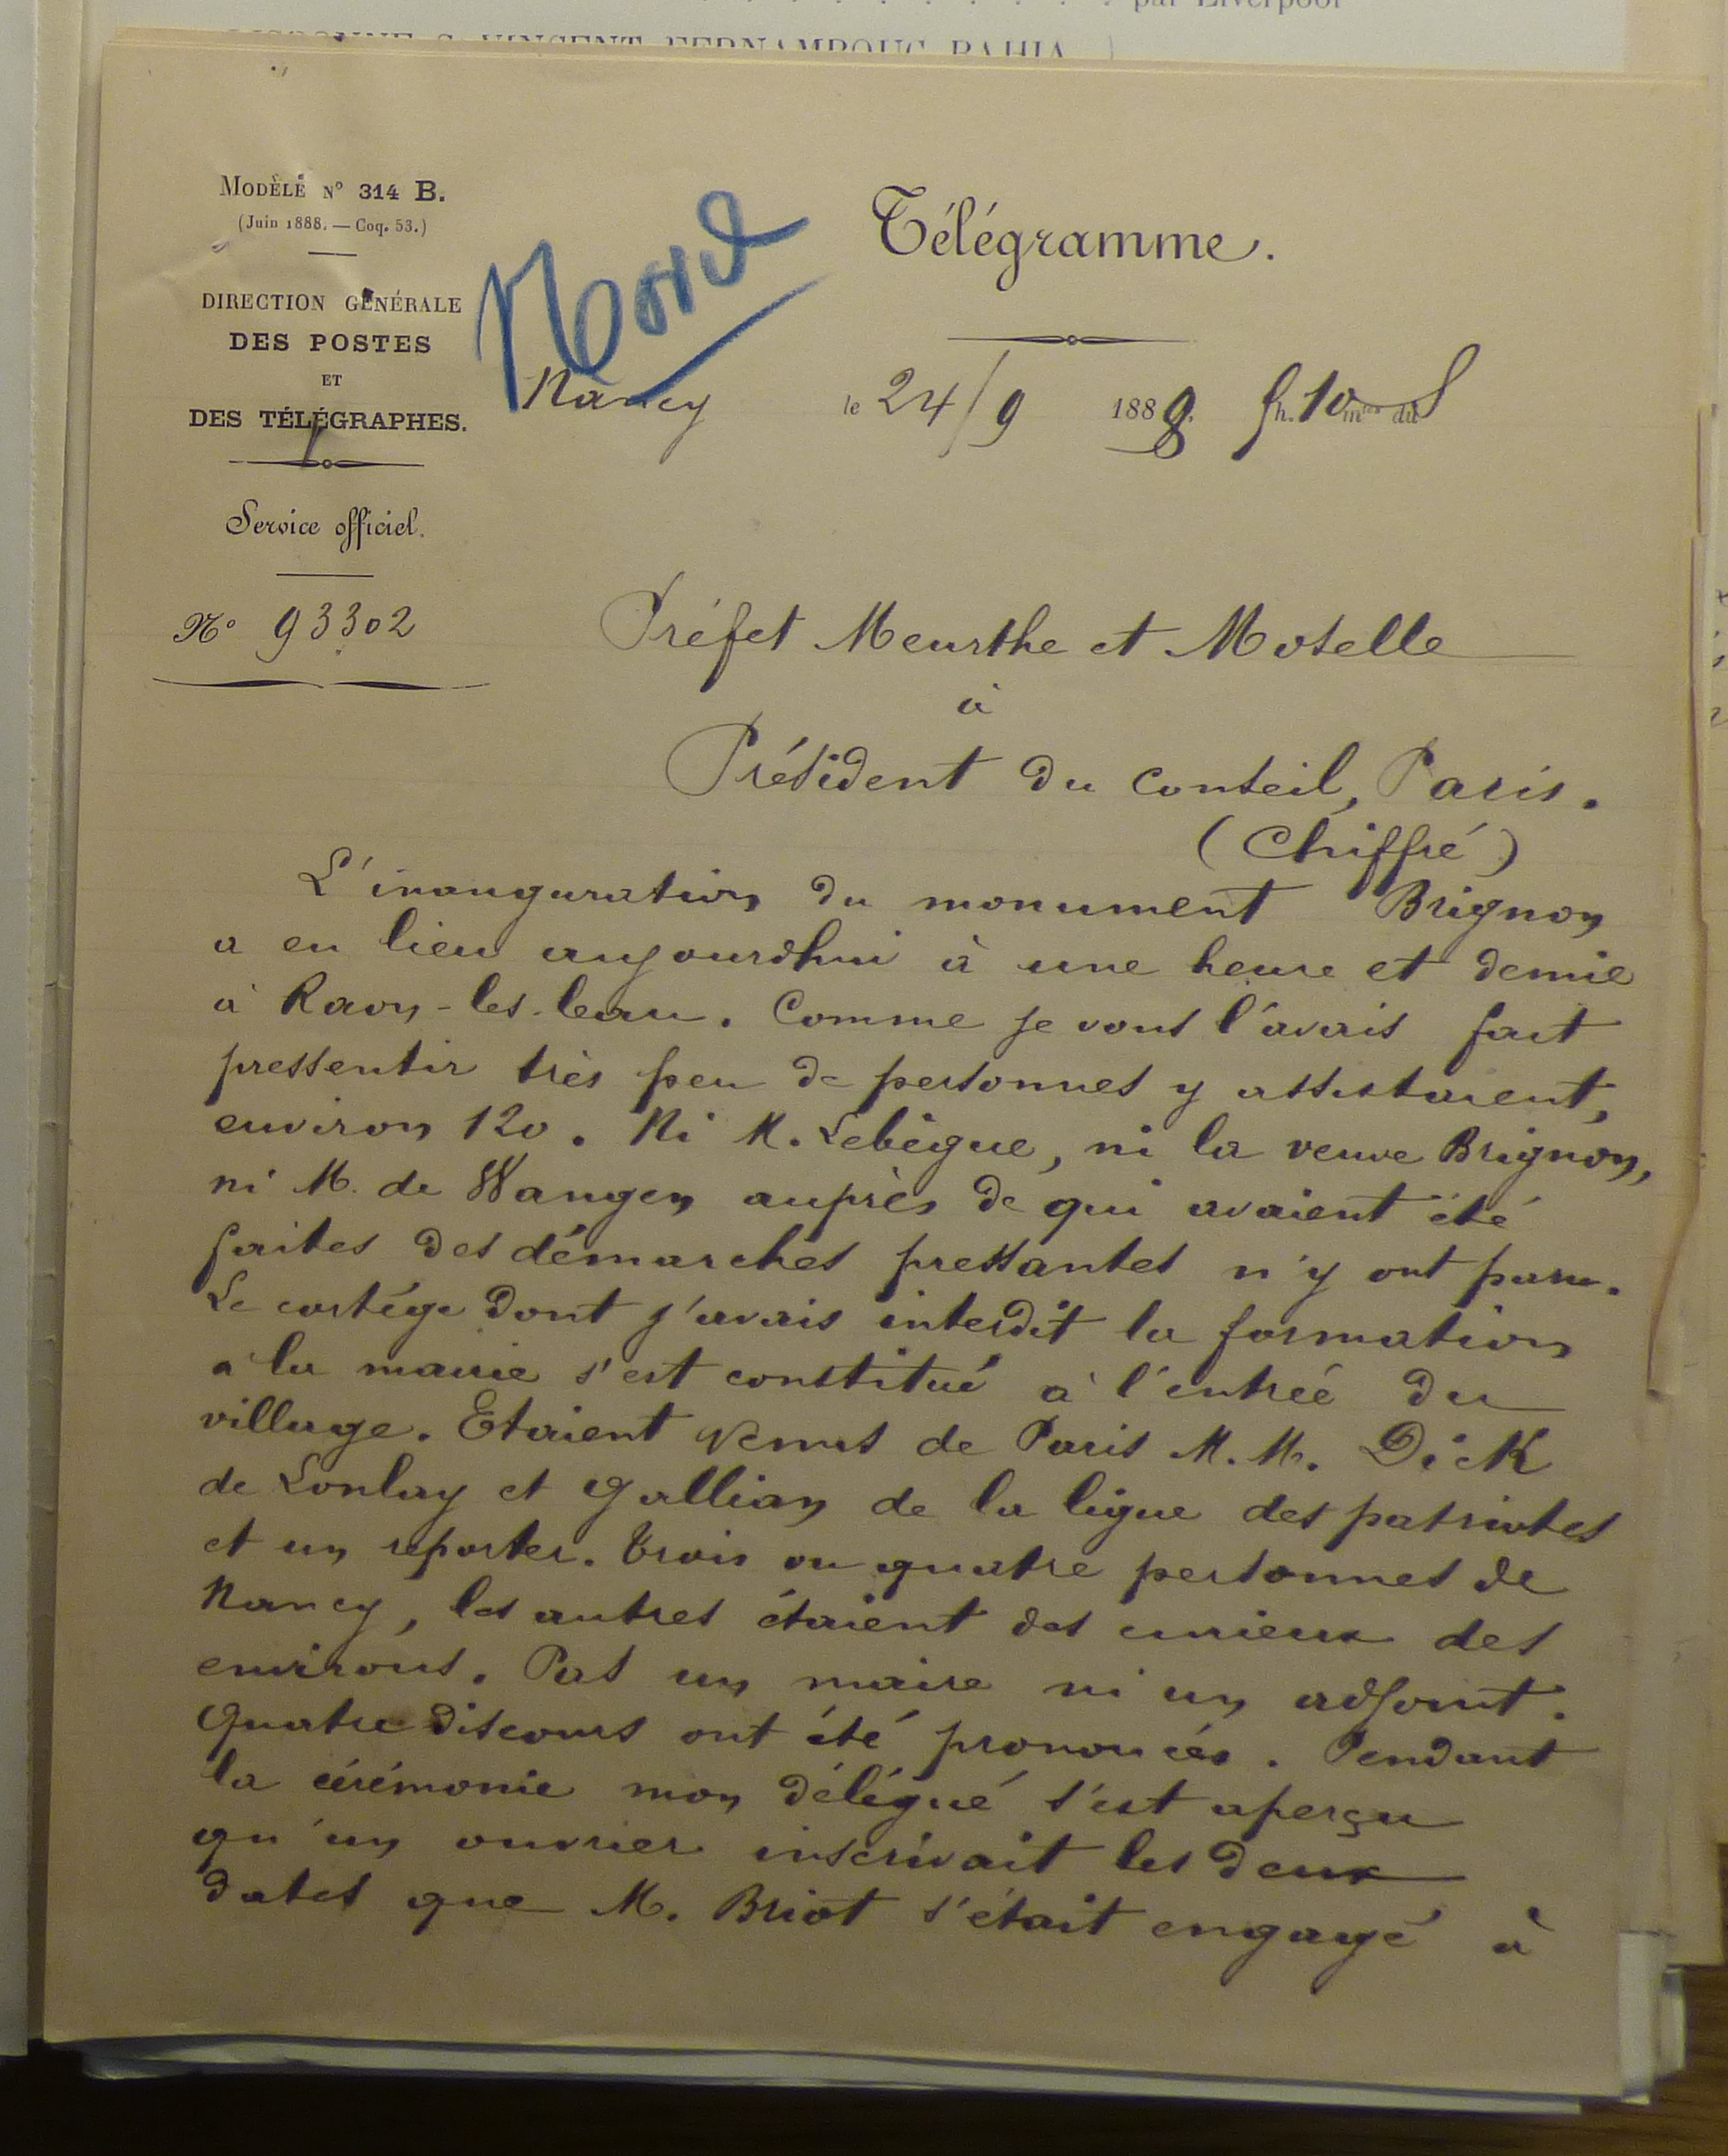 par Liverpool
MODÈLE N° 314 B.
(Juin 1888. — Coq. 53.)
DIRECTION GÉNÉRALE
DES POSTES
ET
DES TÉLÉGRAPHES.
Service officiel.
N° 93302
Nord
Télégramme.
Nancy le 24/9 1888 h. 10 m du S
Préfet Meurthe et Moselle
à
Président du Conseil, Paris.
(Chiffré)
L'inauguration du monument Brignon
a eu lieu aujourdhui à une heure et demie
à Raon-les-leau. Comme je vous l'avais fait
pressentir très peu de personnes y assistaient,
environ 120. Ni M. Lebègue, ni la veuve Brignon,
ni M. de Wangen auprès de qui avaient été
faites des démarches pressantes n'y ont paru.
Le cortége dont j'avais interdit la formation
a la mairie s'est constitué à l'entrée du
village. Etaient venus de Paris M.M. Dick
de Lonlay et Gallian de la ligue des patriotes
et un reporter. Trois ou quatre personnes de
Nancy, les autres étaient des curieux des
environs. Pas un maire ni un adjoint.
Quatre discours ont été prononcés. Pendant
la cérémonie mon délégué s'est aperçu
qu'un ouvrier inscrivait les deux
dates que M. Briot s'était engagé à